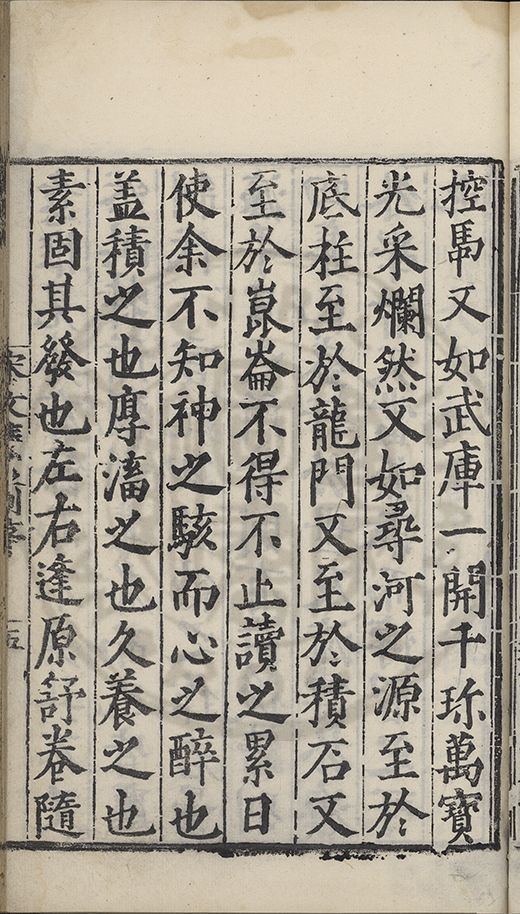 控馬又如武庫一開千珎萬寶
光采爛然又如尋河之源至於
底柱至於龍門又至於積石又
至於崑崙不得不止讀之累日
使余不知神之駭而心之醉也
盖積之也厚滀之也久養之也
素固其發也左右逢原舒卷隨